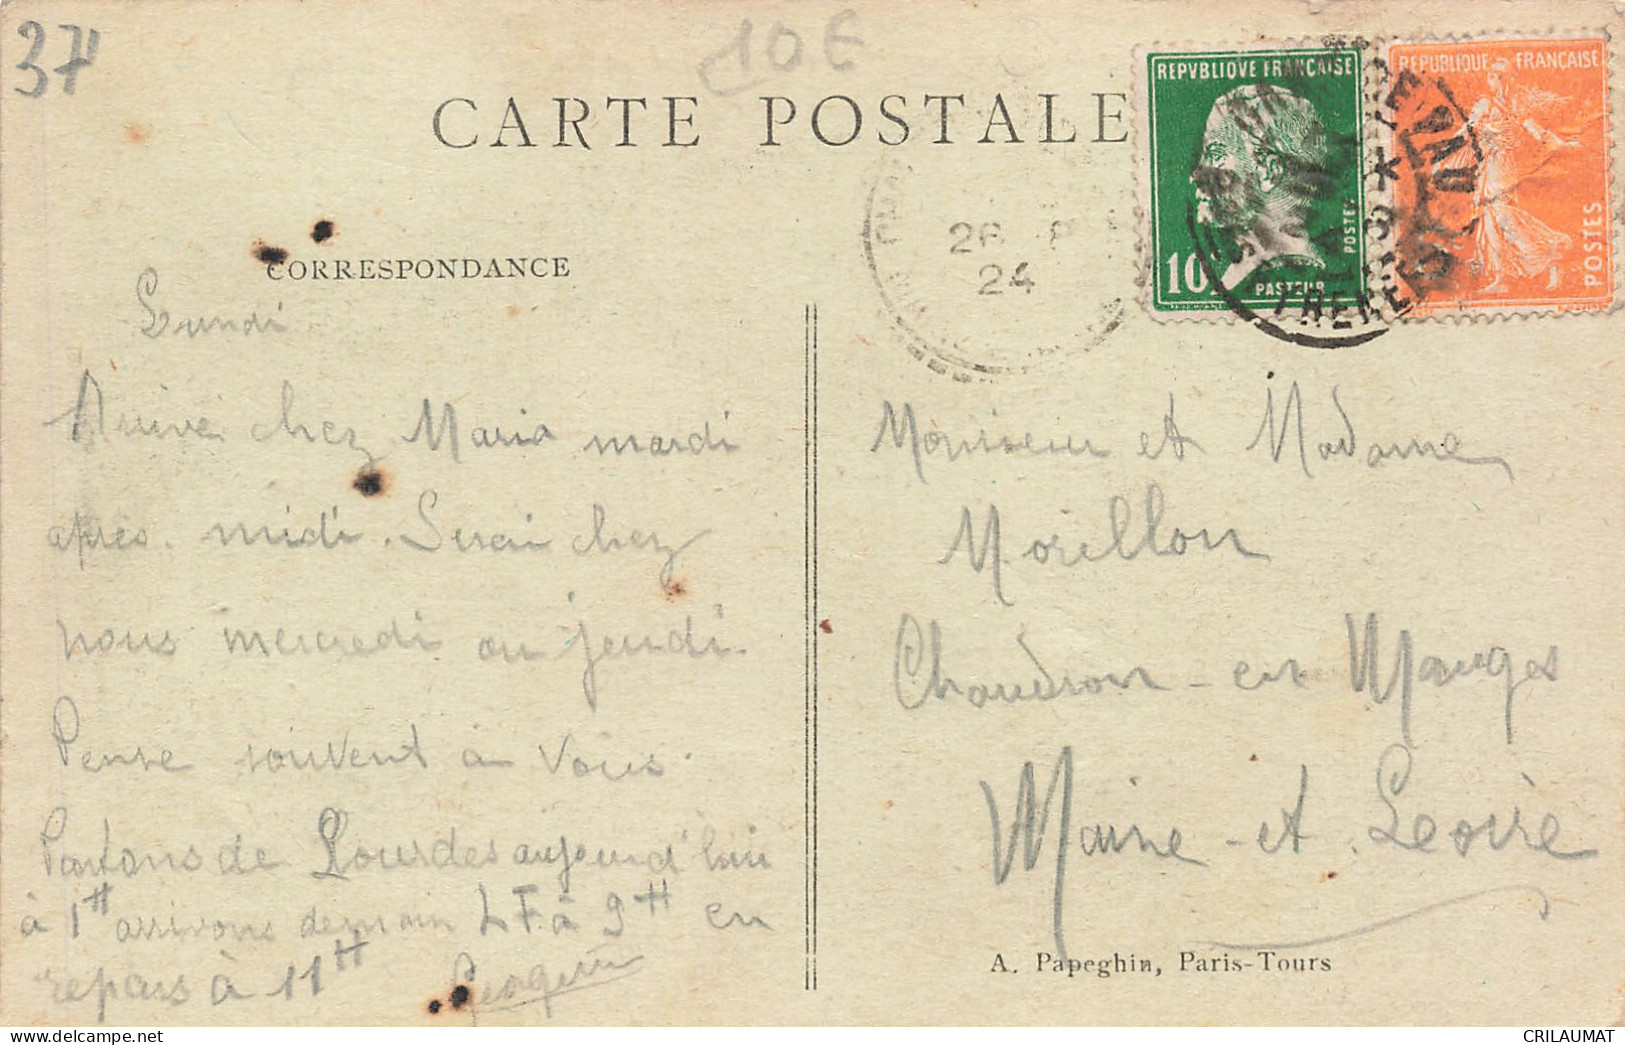 37
10€
CARTE POSTALE
REPVBLIQVE FRANÇAISE
POSTES
10
PASTEUR
REPUBLIQUE FRANÇAISE
POSTES
26
24
CORRESPONDANCE
Lundi
Arrive chez Maria mardi
après. midi. Serai chez
nous mercredi ou jeudi.
Pense souvent à vous.
Partons de Lourdes aujourd'hui
à 1H arrivons demain LF à 9H en
repars à 11H
Monsieur et Madame
Morillon
Chaudron-en Mauges
Maine-et. Leoire
A. Papeghin, Paris-Tours
delcampe.net
CRILAUMAT